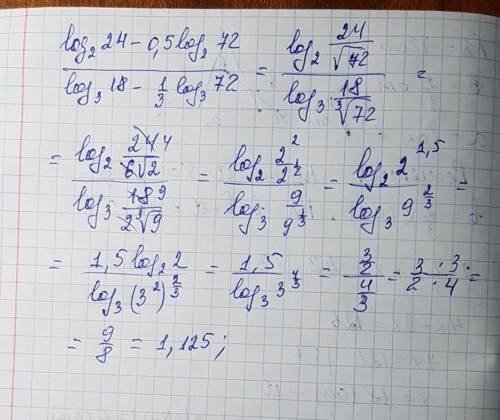 (log₂ 24 − 0,5 log₂ 72) / (log₃ 18 − 1/3 log₃ 72) = (log₂ 24/√72) / (log₃ 18/∛72) =
= (log₂ 24 4/6√2) / (log₃ 18 9/2∛9) = (log₂ 2²/2^(1/2)) / (log₃ 9/9^(1/3)) = (log₂ 2^(1,5)) / (log₃ 9^(2/3)) =
= (1,5 log₂ 2) / (log₃ (3²)^(2/3)) = 1,5 / (log₃ 3^(4/3)) = (3/2) / (4/3) = (3 · 3) / (2 · 4) =
= 9/8 = 1,125;